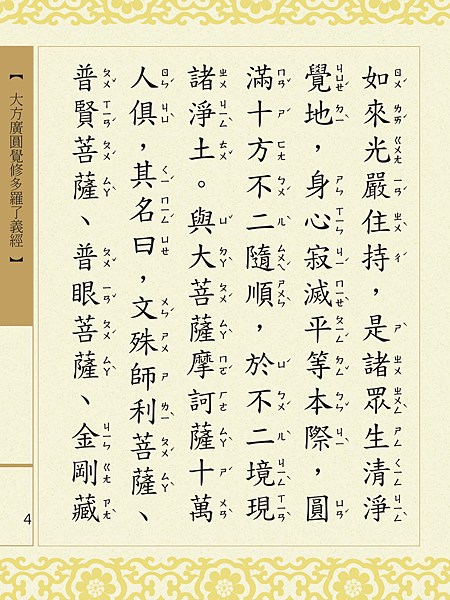 如來光嚴住持，是諸眾生清淨
覺地，身心寂滅平等本際，圓
滿十方不二隨順，於不二境現
諸淨土。與大菩薩摩訶薩十萬
人俱，其名曰，文殊師利菩薩、
普賢菩薩、普眼菩薩、金剛藏
【大方廣圓覺修多羅了義經】
4